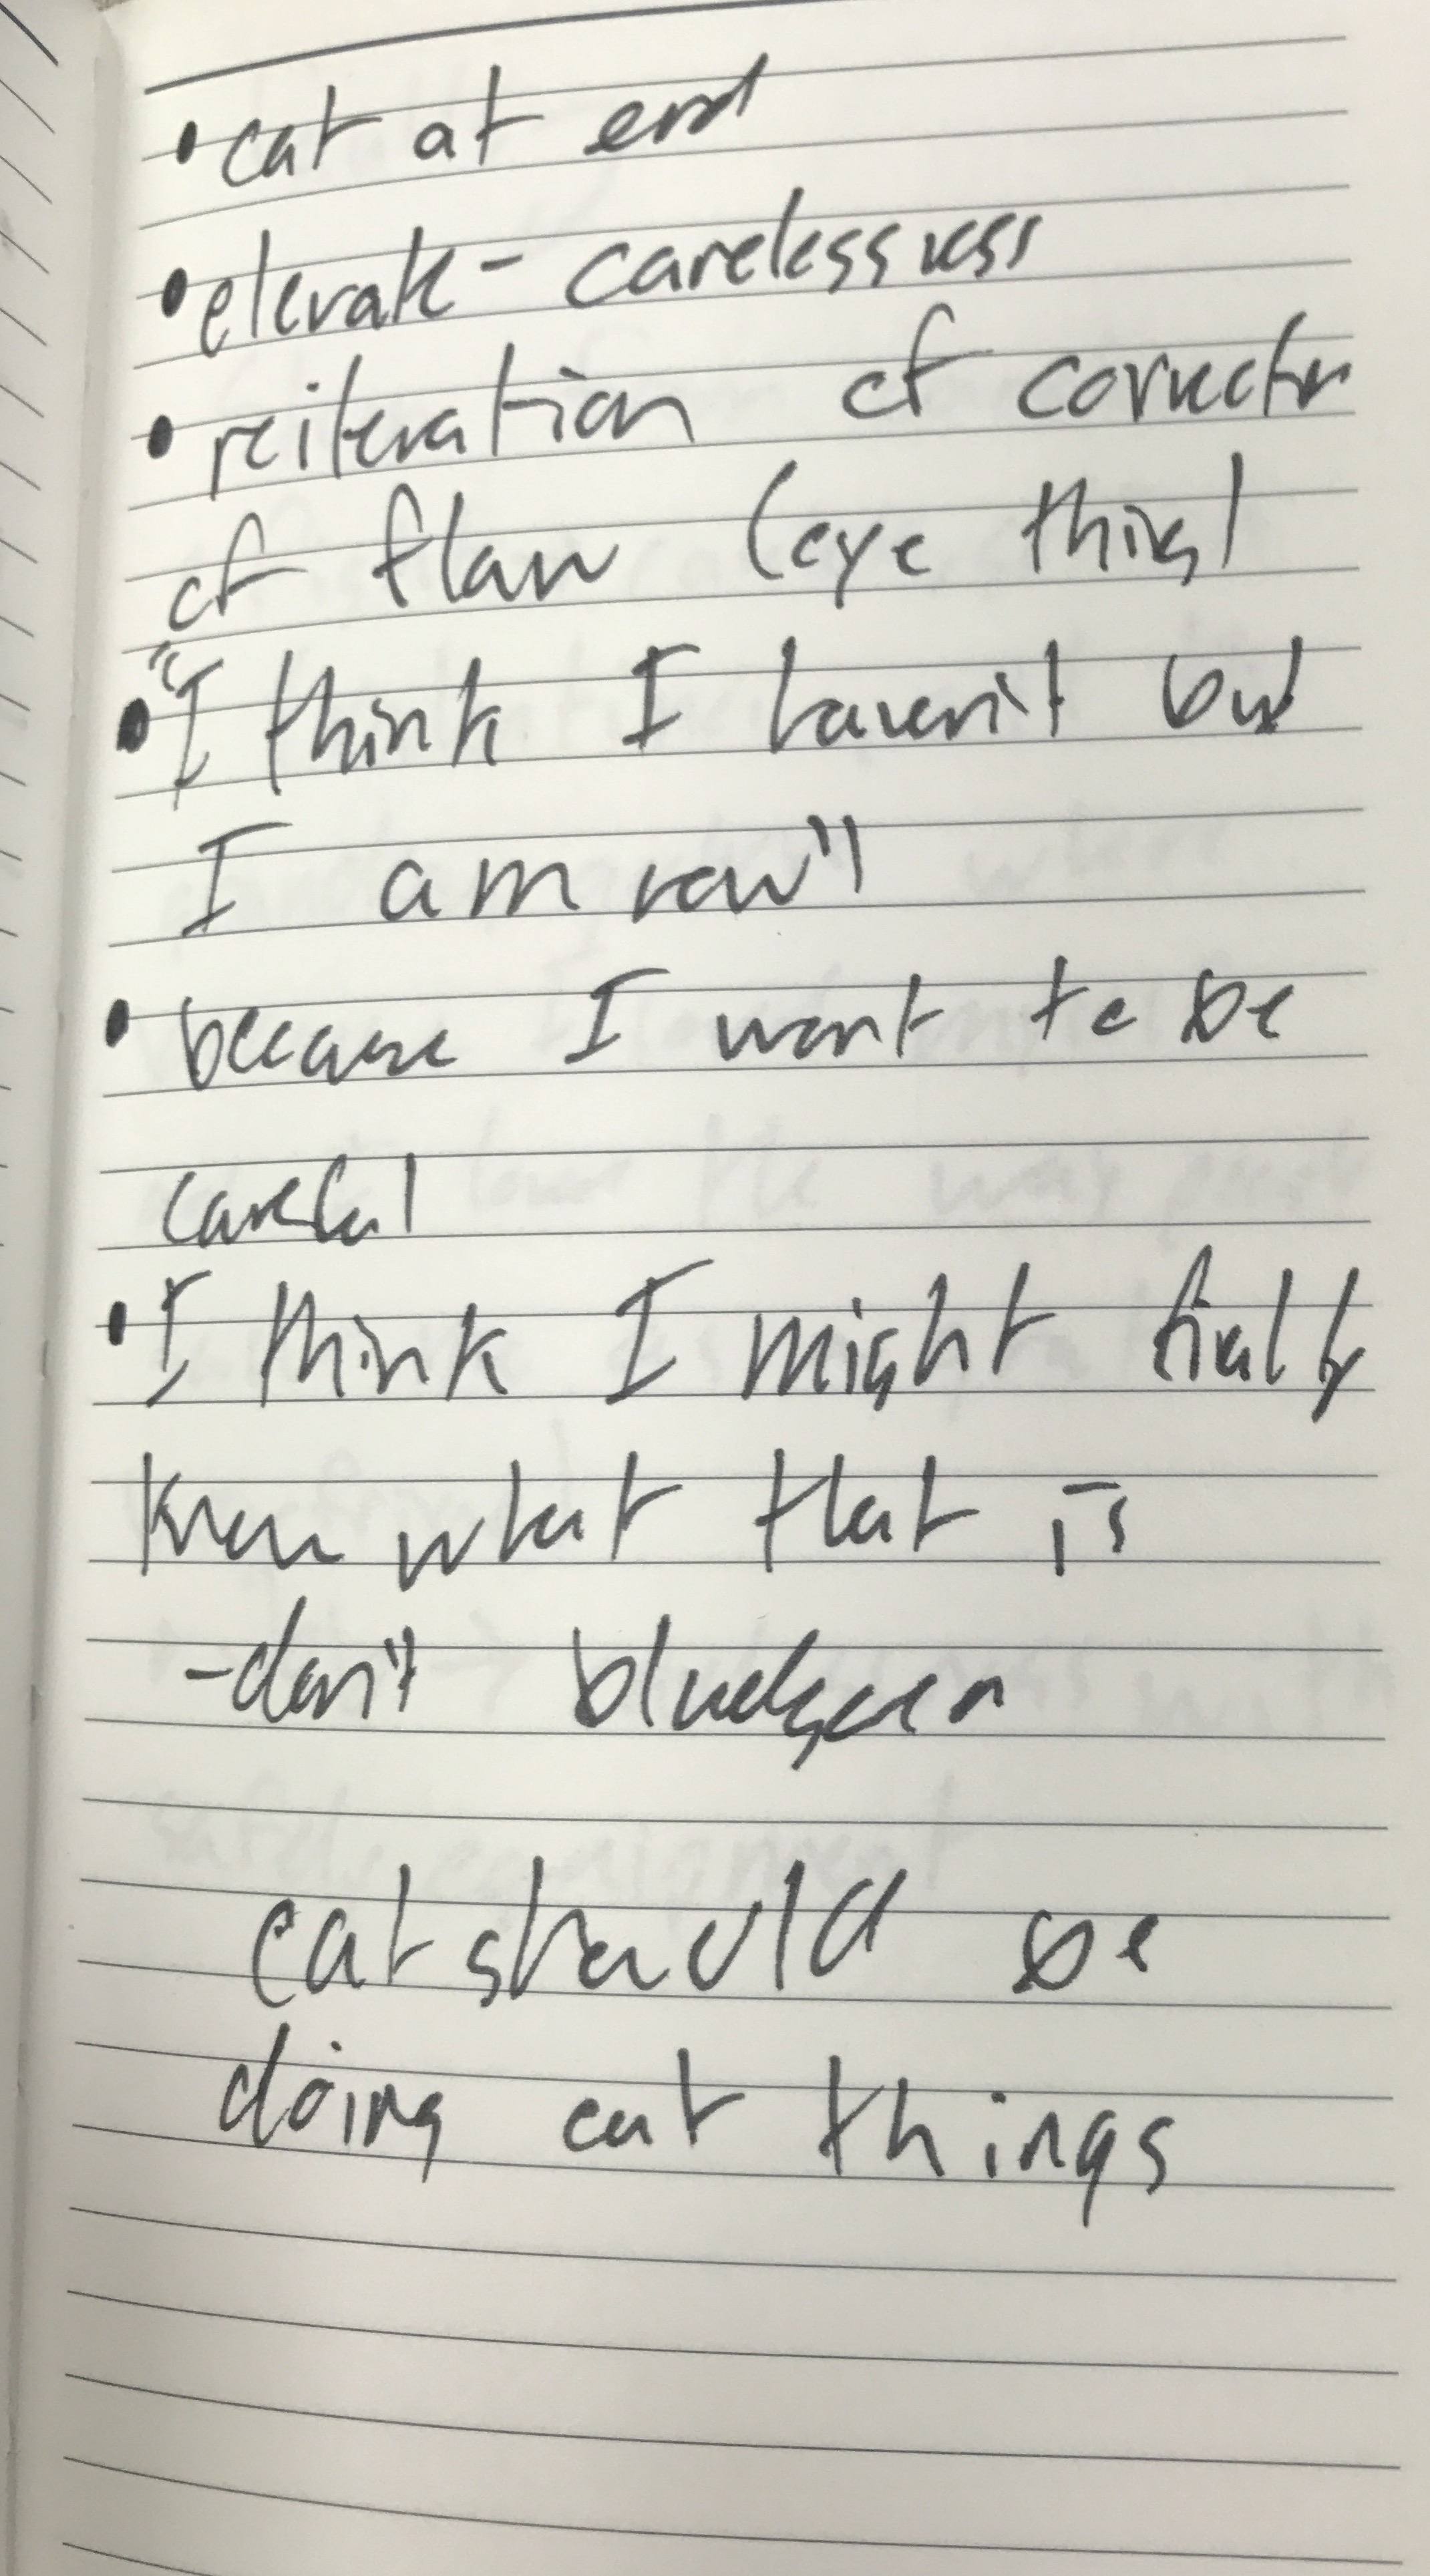 • cat at end
• elevate - carelessness
• reiteration of correction
of flaw (eye thing)
• "I think I haven't but
I am now"
• because I want to be
careful
• I think I might finally
know what that is
- don't bludgeon
cat should be
doing cat things